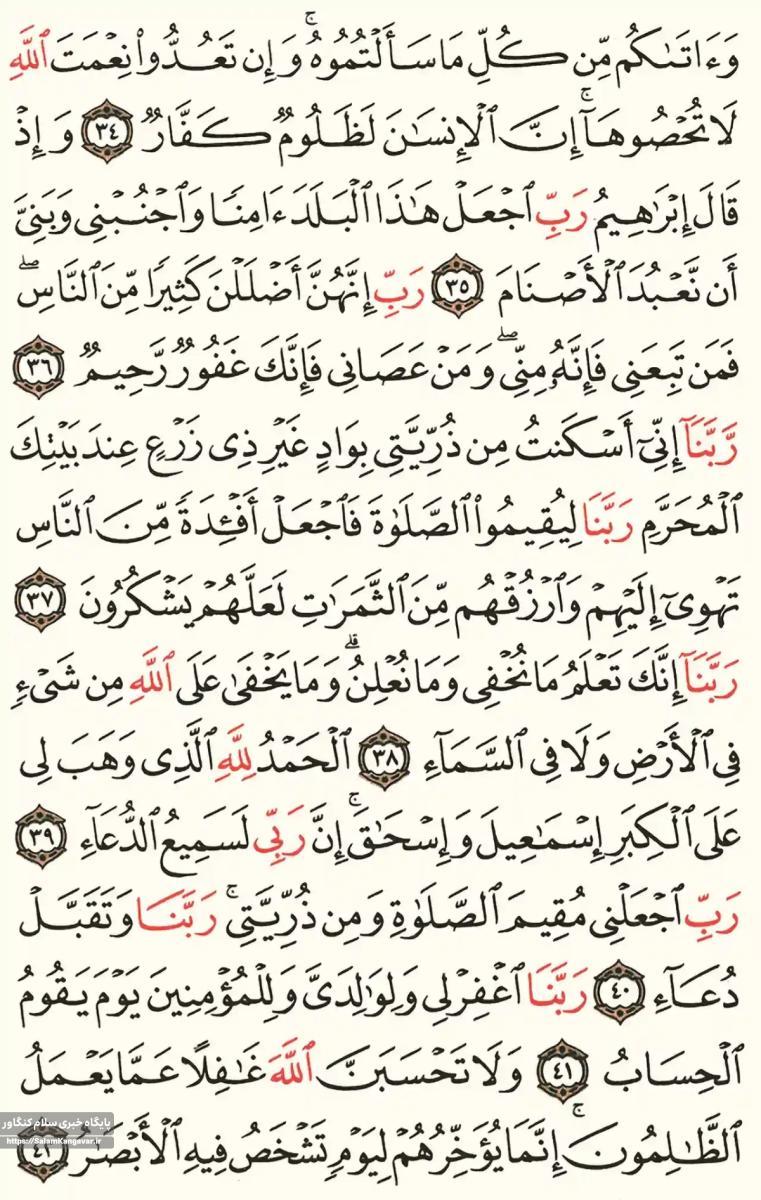 وَءَاتَىٰكُم مِّن كُلِّ مَا سَأَلْتُمُوهُۚ وَإِن تَعُدُّوا۟ نِعْمَتَ ٱللَّهِ
لَا تُحْصُوهَآۚ إِنَّ ٱلْإِنسَٰنَ لَظَلُومٌ كَفَّارٌ ٣٤ وَإِذْ
قَالَ إِبْرَٰهِيمُ رَبِّ ٱجْعَلْ هَٰذَا ٱلْبَلَدَ ءَامِنًا وَٱجْنُبْنِى وَبَنِىَّ
أَن نَّعْبُدَ ٱلْأَصْنَامَ ٣٥ رَبِّ إِنَّهُنَّ أَضْلَلْنَ كَثِيرًا مِّنَ ٱلنَّاسِۖ
فَمَن تَبِعَنِى فَإِنَّهُۥ مِنِّىۖ وَمَنْ عَصَانِى فَإِنَّكَ غَفُورٌ رَّحِيمٌ ٣٦
رَّبَّنَآ إِنِّىٓ أَسْكَنتُ مِن ذُرِّيَّتِى بِوَادٍ غَيْرِ ذِى زَرْعٍ عِندَ بَيْتِكَ
ٱلْمُحَرَّمِ رَبَّنَا لِيُقِيمُوا۟ ٱلصَّلَوٰةَ فَٱجْعَلْ أَفْـِٔدَةً مِّنَ ٱلنَّاسِ
تَهْوِىٓ إِلَيْهِمْ وَٱرْزُقْهُم مِّنَ ٱلثَّمَرَٰتِ لَعَلَّهُمْ يَشْكُرُونَ ٣٧
رَبَّنَآ إِنَّكَ تَعْلَمُ مَا نُخْفِى وَمَا نُعْلِنُۗ وَمَا يَخْفَىٰ عَلَى ٱللَّهِ مِن شَىْءٍ
فِى ٱلْأَرْضِ وَلَا فِى ٱلسَّمَآءِ ٣٨ ٱلْحَمْدُ لِلَّهِ ٱلَّذِى وَهَبَ لِى
عَلَى ٱلْكِبَرِ إِسْمَٰعِيلَ وَإِسْحَٰقَۚ إِنَّ رَبِّى لَسَمِيعُ ٱلدُّعَآءِ ٣٩
رَبِّ ٱجْعَلْنِى مُقِيمَ ٱلصَّلَوٰةِ وَمِن ذُرِّيَّتِىۚ رَبَّنَا وَتَقَبَّلْ
دُعَآءِ ٤٠ رَبَّنَا ٱغْفِرْ لِى وَلِوَٰلِدَىَّ وَلِلْمُؤْمِنِينَ يَوْمَ يَقُومُ
ٱلْحِسَابُ ٤١ وَلَا تَحْسَبَنَّ ٱللَّهَ غَٰفِلًا عَمَّا يَعْمَلُ
ٱلظَّٰلِمُونَۚ إِنَّمَا يُؤَخِّرُهُمْ لِيَوْمٍ تَشْخَصُ فِيهِ ٱلْأَبْصَٰرُ ٤٢
پایگاه خبری سلام کنگاور
https://SalamKangavar.ir